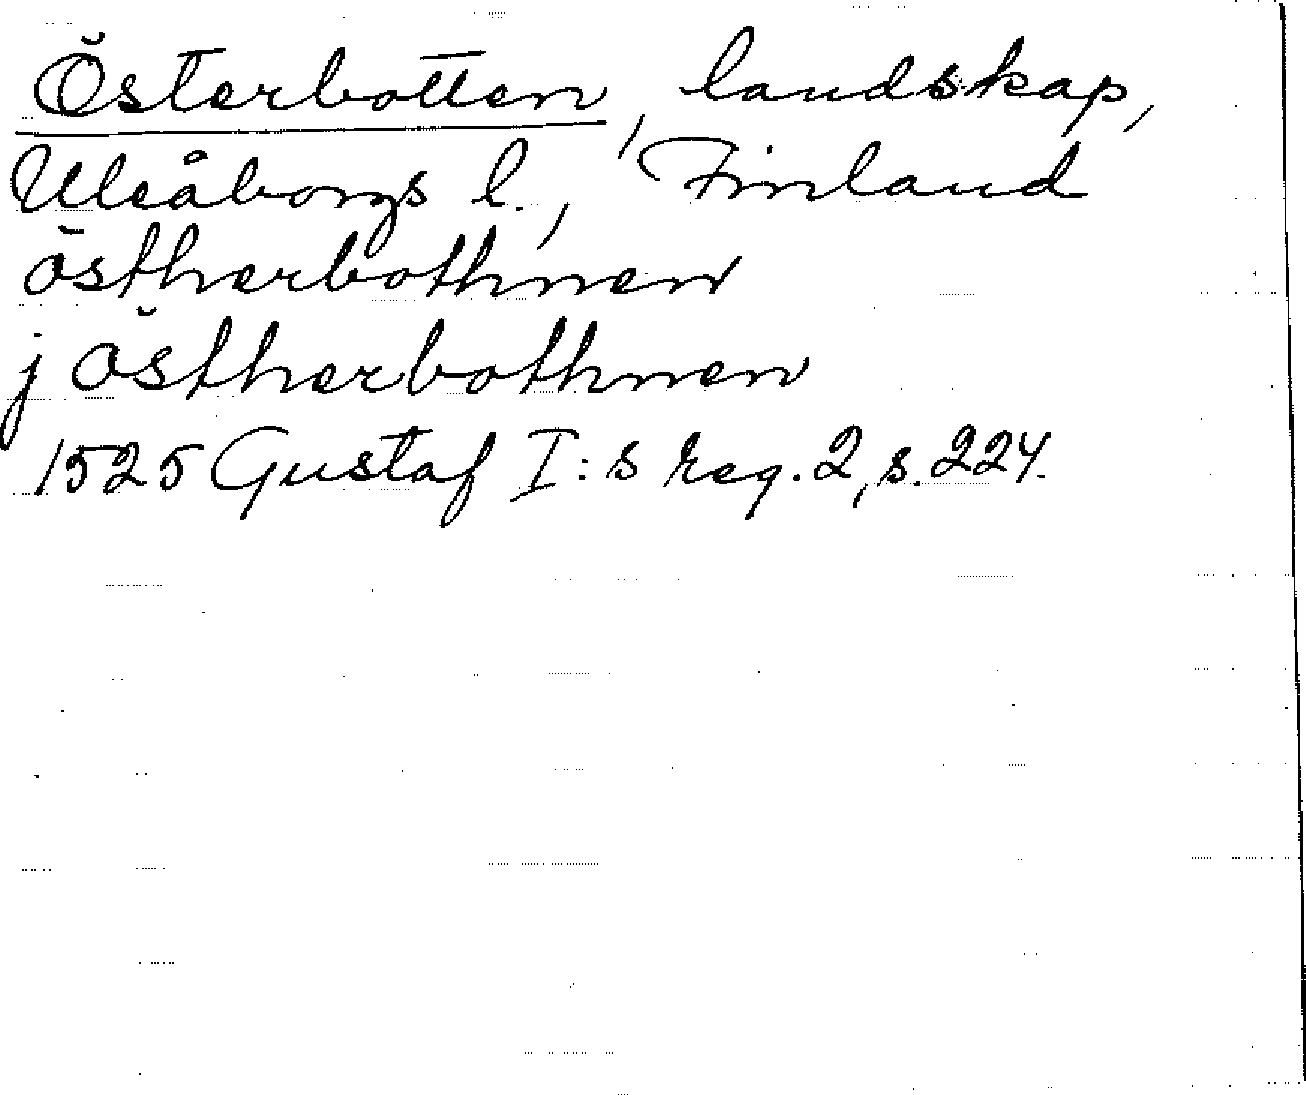 Österbotten, landskap,
Uleåborgs l., Finland
östherbothnen
j östherbothnen
1525 Gustaf I:s reg. 2, s. 224.